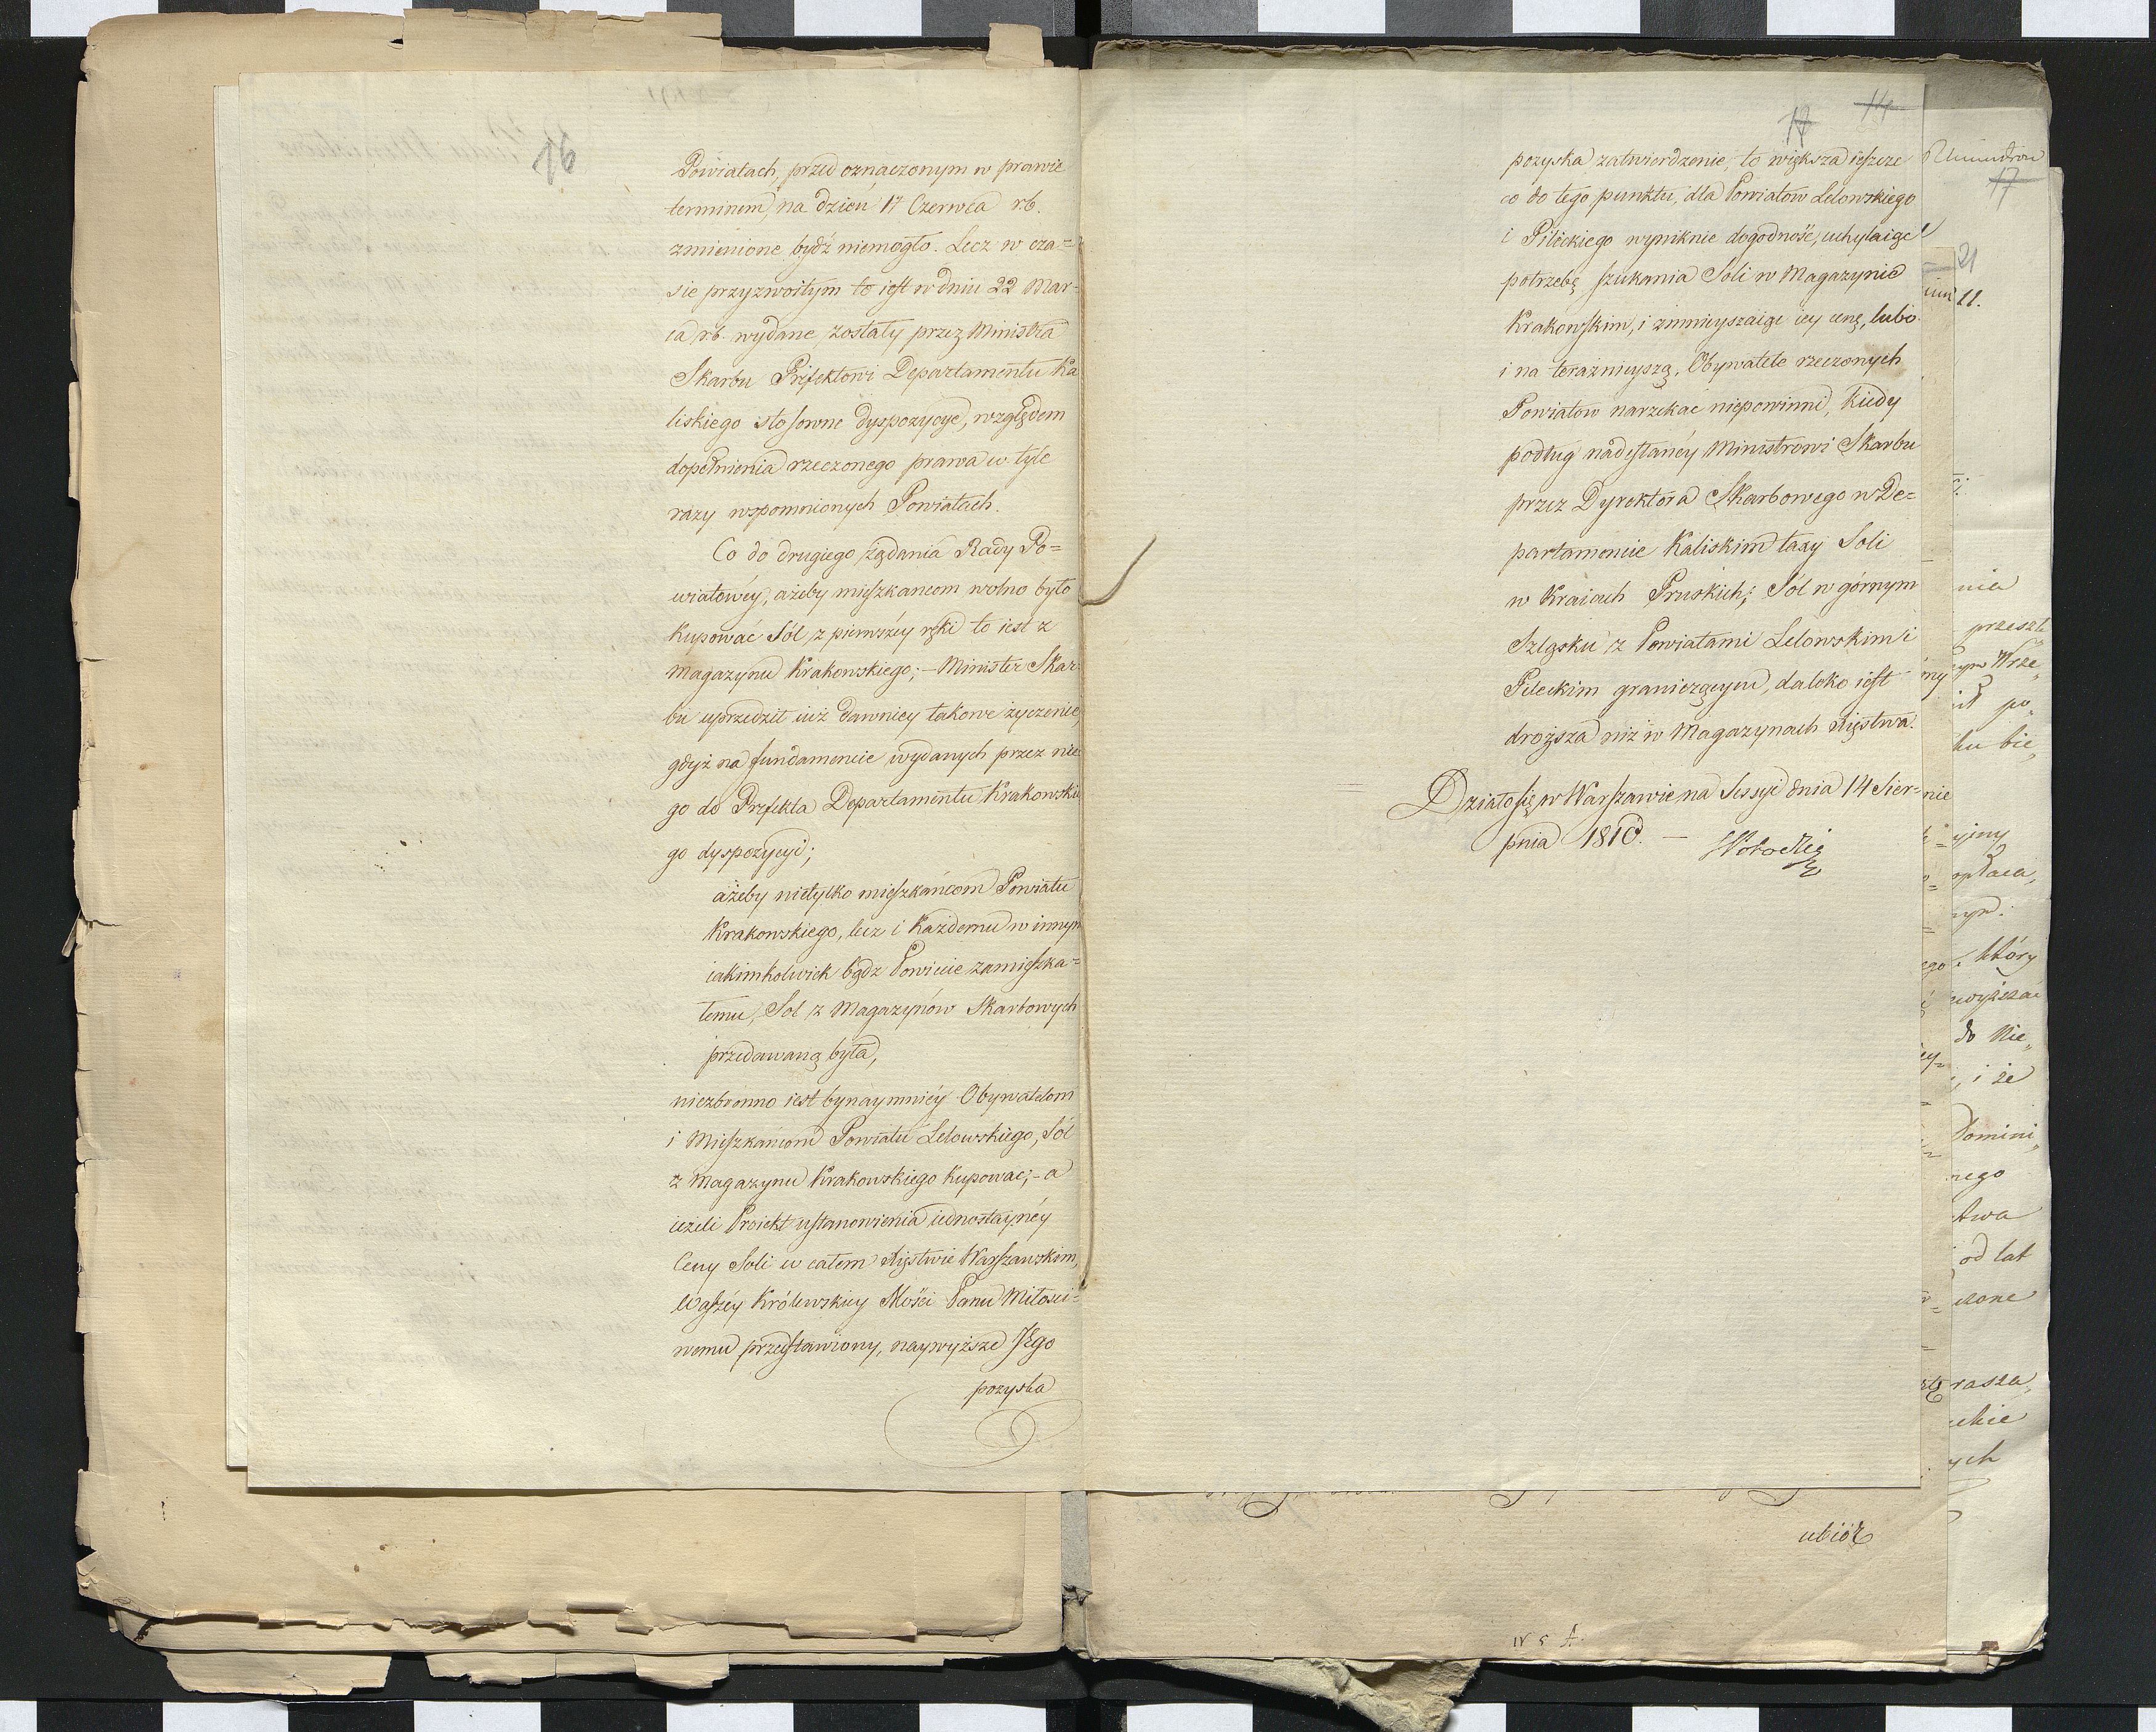 16
Powiatach, przed oznaczonym w prawie
terminem, na dzień 17 Czerwca r.b.
zmienione bydź niemogło. Lecz w cza=
sie przyzwoitym to iest w dniu 22 Mar=
ca r.b. wydane zostały przez Ministra
Skarbu Prefektowi Departamentu Ka
liskiego stosowne dyspozycye, względem
dopełnienia rzeczonego prawa w tyle
razy wspomnionych Powiatach.
Co do drugiego żądania Rady Po=
wiatowéy, ażeby mieszkancom wolno było
kupować Sól z pierwszéy ręki to iest z
Magazynu Krakowskiego; – Minister Skar
bu uprzedził iuż dawniey takowe życzenie,
gdyż na fundamencie wydanych przez nie
go do Prefekta Departamentu Krakowskie
go dyspozycyi;
ażeby nietylko mieszkańcom Powiatu
Krakowskiego, lecz i Każdemu w innym
iakimkolwiek bądz Powiecie zamieszka=
łemu, Sol z Magazynów Skarbowych
przedawaną była,
niezbronno iest bynaymniéy Obywatelom
i Mieszkańcom Powiatu Lelowskiego, Sól
z Magazynu Krakowskiego kupowac; – a
ieżeli Proiekt ustanowienia iednostaynéy
Ceny Soli w całem Xięstwie Warszawskim,
Waszéy Królewskiey Mości Panu Miłości=
wemu przedstawiony, naywyższe JEgo
pozyska
17 14
pozyska zatwierdzenie, to większa ieszcze
co do tego punktu, dla Powiatow Lelowskiego
i Pilickiego wyniknie dogodność, uchylaiąc
potrzebę szukania Soli w Magazynie
Krakowskim, i zmnieyszaiąc iey cenę, lubo
i na teraźnieyszą, Obywatele rzeczonych
Powiatow narzekac niepowinni, kiedy
podług nadesłanéy Ministrowi Skarbu
przez Dyrektora Skarbowego w De=
partamencie Kaliskim taxy Soli
w Kraiach Pruskich; Sól w górnym
Szląsku z Powiatami Lelowskim i
Pileckim graniczącym, daleko iest
droższa niż w Magazynach Xięstwa.
Działo się w Warszawie na Sessyi dnia 14 Sier=
pnia 1810. –
17
21
11.
nia
przeszł
po„
bie„
który
do Nie„
i że
Domini„
od lat
ubiór